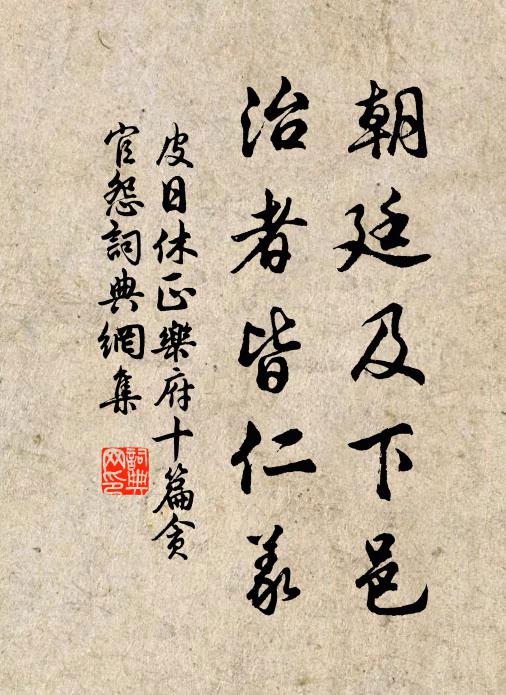 朝廷及下邑
治者皆仁義
皮日休正樂府十篇貪
官怨詞典網集
詞典
网印